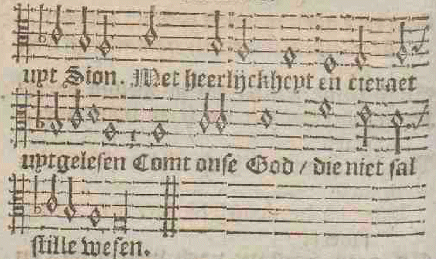 uyt Sion. Met heerlijckheyt en cieraet
uytgelesen Comt onse God / die niet sal
stille wesen.